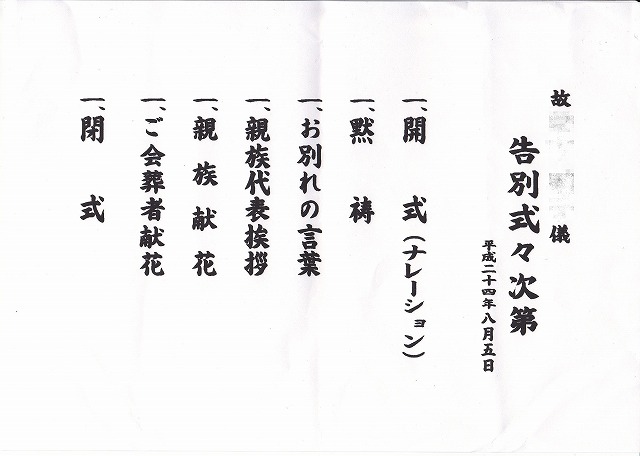 故 儀
告別式々次第
平成二十四年八月五日
一、開式(ナレーション)
一、黙祷
一、お別れの言葉
一、親族代表挨拶
一、親族献花
一、ご会葬者献花
一、閉式